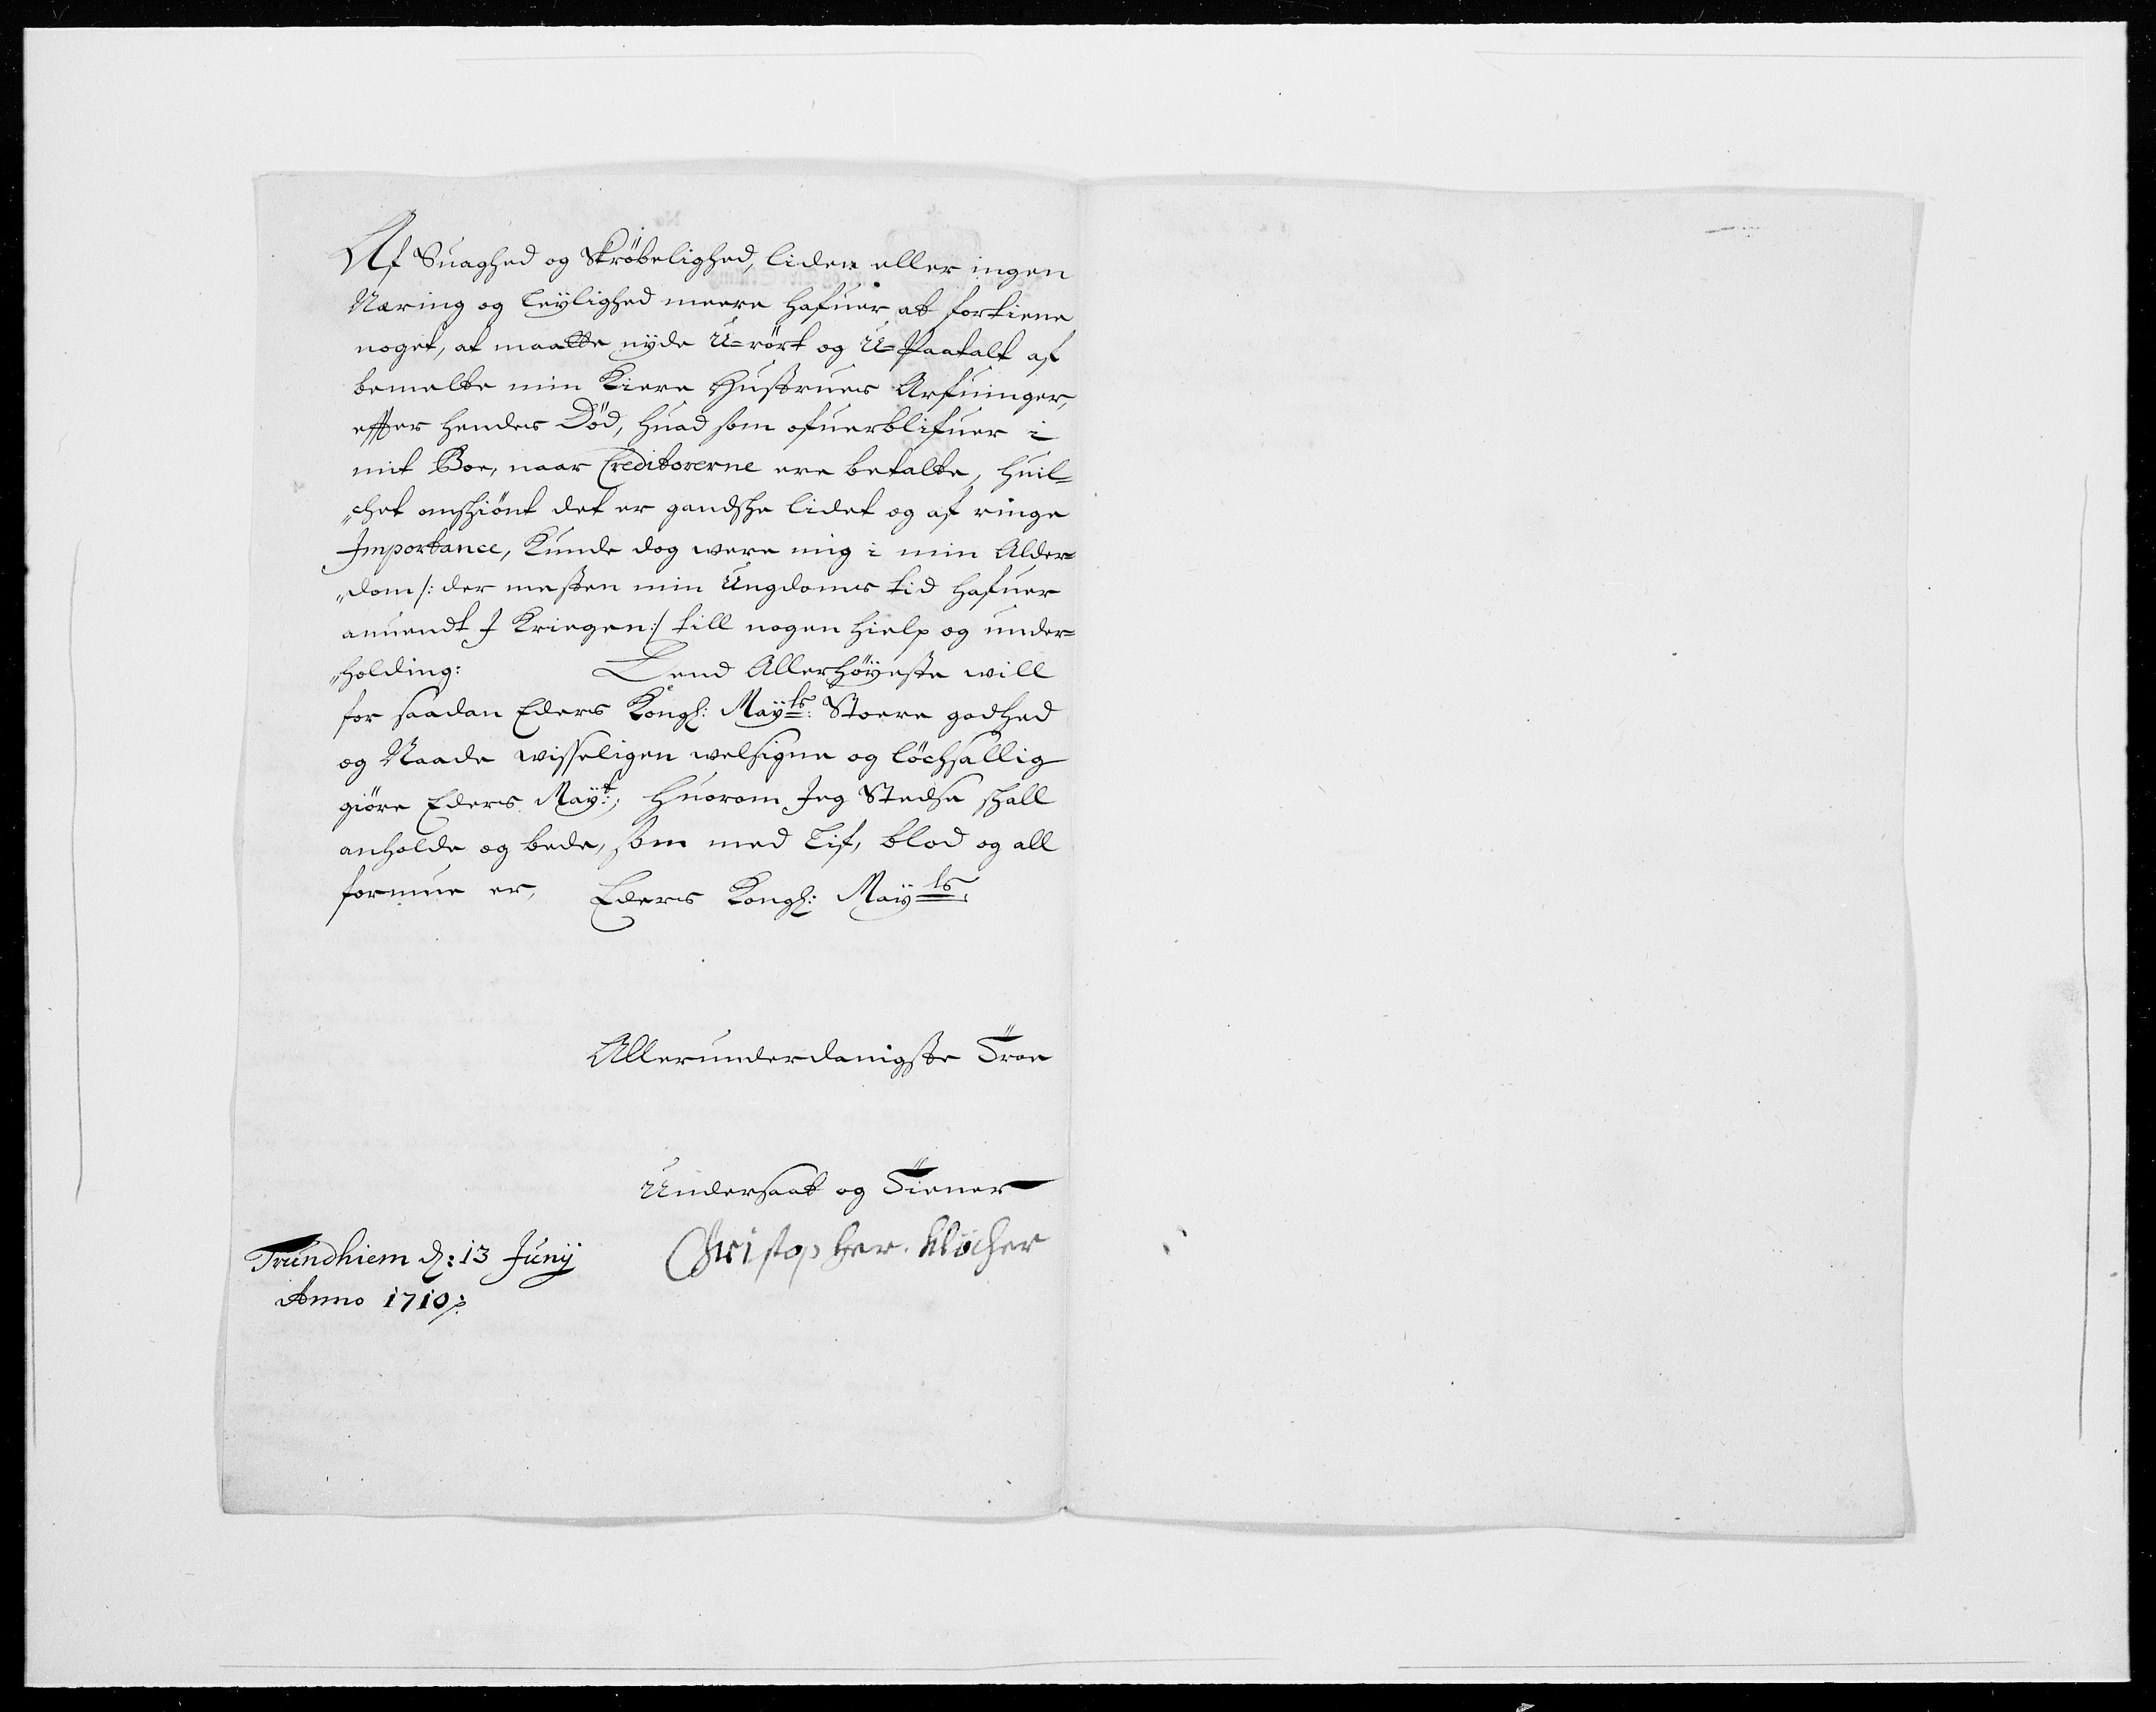 Af Suaghed og Skröbelighed, liden eller ingen
Næring og Leÿlighed meere hafuer at fortiene
noget, at maatte nyde U=rört og U=Paatalt af
bemelte min Kiere Hustrues Arfuinger,
efter hendes Död, huad som ofuerblifuer i
mit Boe, naar Creditorerne ere betalte, huil=
"chet omschiönt det er gandsche lidet og af ringe
Importance, Kunde dog were mig i min Alder=
"dom /: der mesten min Ungdoms tid hafuer
anuendt J Kriegen :/ till nogen hielp og under=
"holding: Gud Allerhöyeste will
for saadan Eders Kongl: Mayts: Stoere godhed
og Naade wisseligen welsigne og löchsallig
giöre Eders Mayt:, huorom Jeg Stedse schall
anholde og bede, som med Lif, blod og all
formue er, Eders Kongl: Mayts:
Allerunderdanigste Troe
Undersaat og Tiener
Christopher Klöcher
Trundhiem d: 13 Junij
Anno 1710